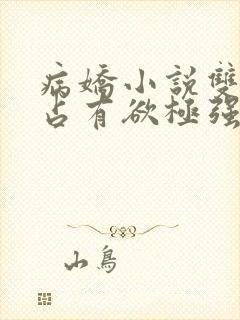 病嬌小説雙
占有欲極强
山鳥